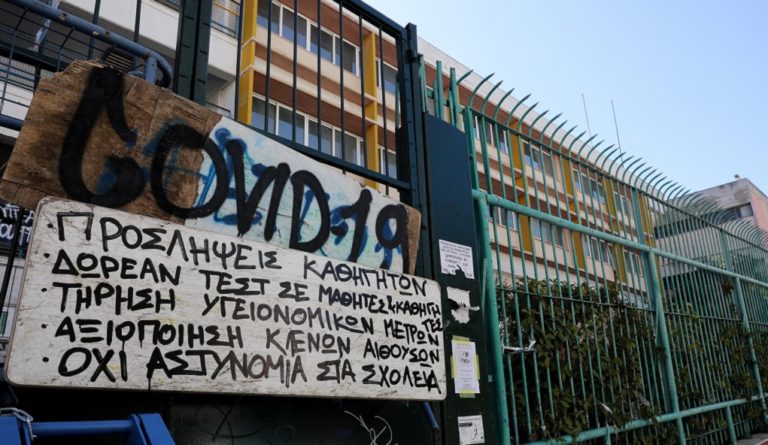 COVID-19
·ΠΡΟΣΛΗΨΕΙΣ ΚΑΘΗΓΗΤΩΝ
·ΔΩΡΕΑΝ ΤΕΣΤ ΣΕ ΜΑΘΗΤΕΣ & ΚΑΘΗΓΗΤΕΣ
·ΤΗΡΗΣΗ ΥΓΕΙΟΝΟΜΙΚΩΝ ΜΕΤΡΩΝ
·ΑΞΙΟΠΟΙΗΣΗ ΚΕΝΩΝ ΑΙΘΟΥΣΩΝ
·ΟΧΙ ΑΣΤΥΝΟΜΙΑ ΣΤΑ ΣΧΟΛΕΙΑ